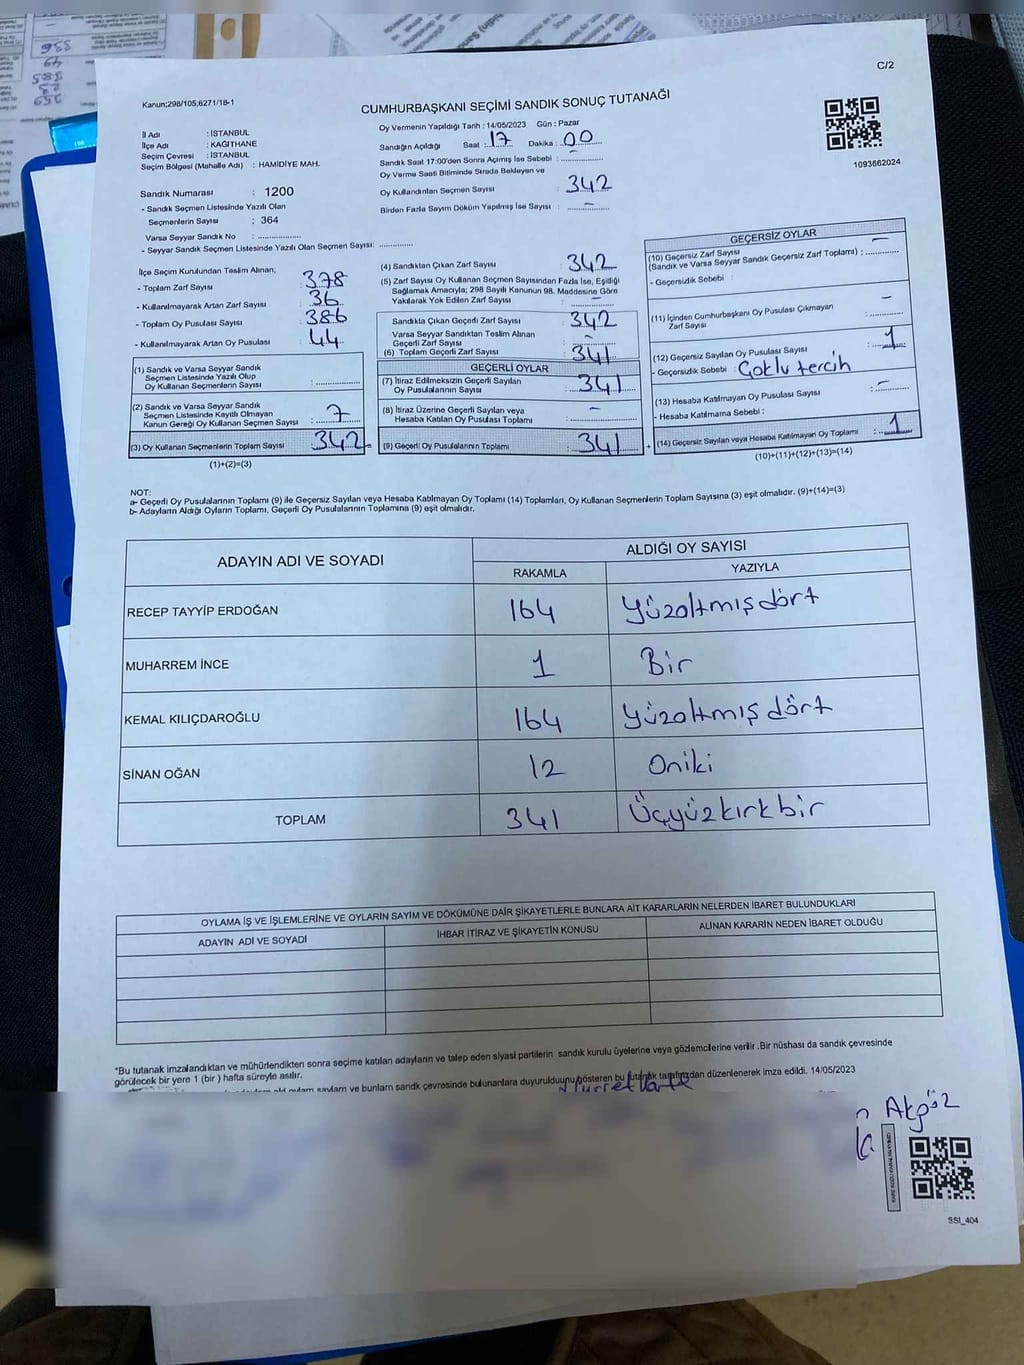 C/2
Kanun;298/105,6271/18-1
CUMHURBAŞKANI SEÇİMİ SANDIK SONUÇ TUTANAĞI
1093662024
İl Adı : İSTANBUL
İlçe Adı : KAĞITHANE
Seçim Çevresi : İSTANBUL
Seçim Bölgesi (Mahalle Adı) : HAMİDİYE MAH.
Oy Vermenin Yapıldığı Tarih : 14/05/2023 Gün : Pazar
Sandığın Açıldığı Saat : 17 Dakika : 00
Sandık Saat 17:00'den Sonra Açılmış İse Sebebi :
Oy Verme Saati Bitiminde Sırada Bekleyen ve
Oy Kullandırılan Seçmen Sayısı : 342
Birden Fazla Sayım Döküm Yapılmış İse Sayısı : -
Sandık Numarası : 1200
- Sandık Seçmen Listesinde Yazılı Olan
Seçmenlerin Sayısı : 364
Varsa Seyyar Sandık No :
- Seyyar Sandık Seçmen Listesinde Yazılı Olan Seçmen Sayısı:
İlçe Seçim Kurulundan Teslim Alınan;
- Toplam Zarf Sayısı : 378
- Kullanılmayarak Artan Zarf Sayısı : 36
- Toplam Oy Pusulası Sayısı : 386
- Kullanılmayarak Artan Oy Pusulası : 44
(1) Sandık ve Varsa Seyyar Sandık
Seçmen Listesinde Yazılı Olup
Oy Kullanan Seçmenlerin Sayısı :
(2) Sandık ve Varsa Seyyar Sandık
Seçmen Listesinde Kayıtlı Olmayan
Kanun Gereği Oy Kullanan Seçmen Sayısı : 7
(3) Oy Kullanan Seçmenlerin Toplam Sayısı : 342
(1)+(2)=(3)
(4) Sandıktan Çıkan Zarf Sayısı : 342
(5) Zarf Sayısı Oy Kullanan Seçmen Sayısından Fazla İse, Eşitliği
Sağlamak Amacıyla; 298 Sayılı Kanunun 98. Maddesine Göre
Yakılarak Yok Edilen Zarf Sayısı : -
Sandıkta Çıkan Geçerli Zarf Sayısı : 342
Varsa Seyyar Sandıktan Teslim Alınan
Geçerli Zarf Sayısı : -
(6) Toplam Geçerli Zarf Sayısı : 341
GEÇERLİ OYLAR
(7) İtiraz Edilmeksizin Geçerli Sayılan
Oy Pusulalarının Sayısı : 341
(8) İtiraz Üzerine Geçerli Sayılan veya
Hesaba Katılan Oy Pusulası Toplamı : -
(9) Geçerli Oy Pusulalarının Toplamı : 341
GEÇERSİZ OYLAR
(10) Geçersiz Zarf Sayısı
(Sandık ve Varsa Seyyar Sandık Geçersiz Zarf Toplamı) : -
- Geçersizlik Sebebi :
(11) İçinden Cumhurbaşkanı Oy Pusulası Çıkmayan
Zarf Sayısı : -
(12) Geçersiz Sayılan Oy Pusulası Sayısı : 1
- Geçersizlik Sebebi : Çoklu tercih
(13) Hesaba Katılmayan Oy Pusulası Sayısı : -
- Hesaba Katılmama Sebebi :
(14) Geçersiz Sayılan veya Hesaba Katılmayan Oy Toplamı : 1
(10)+(11)+(12)+(13)=(14)
NOT:
a- Geçerli Oy Pusulalarının Toplamı (9) ile Geçersiz Sayılan veya Hesaba Katılmayan Oy Toplamı (14) Toplamları, Oy Kullanan Seçmenlerin Toplam Sayısına (3) eşit olmalıdır. (9)+(14)=(3)
b- Adayların Aldığı Oyların Toplamı, Geçerli Oy Pusulalarının Toplamına (9) eşit olmalıdır.
ADAYIN ADI VE SOYADI ALDIĞI OY SAYISI
RAKAMLA YAZIYLA
RECEP TAYYİP ERDOĞAN 164 Yüzaltmışdört
MUHARREM İNCE 1 Bir
KEMAL KILIÇDAROĞLU 164 Yüzaltmışdört
SİNAN OĞAN 12 Oniki
TOPLAM 341 Üçyüzkırkbir
OYLAMA İŞ VE İŞLEMLERİNE VE OYLARIN SAYIM VE DÖKÜMÜNE DAİR ŞİKAYETLERLE BUNLARA AİT KARARLARIN NELERDEN İBARET BULUNDUKLARI
ADAYIN ADI VE SOYADI İHBAR İTİRAZ VE ŞİKAYETİN KONUSU ALINAN KARARIN NEDEN İBARET OLDUĞU
*Bu tutanak imzalandıktan ve mühürlendikten sonra seçime katılan adayların ve talep eden siyasi partilerin sandık kurulu üyelerine veya gözlemcilerine verilir .Bir nüshası da sandık çevresinde
görülecek bir yere 1 (bir ) hafta süreyle asılır.
sayılanı ve bunların sandık çevresinde bulunanlara duyurulduğunu gösteren bu tutanak tarafımızdan düzenlenerek imza edildi. 14/05/2023
Akgöz
SSI_404